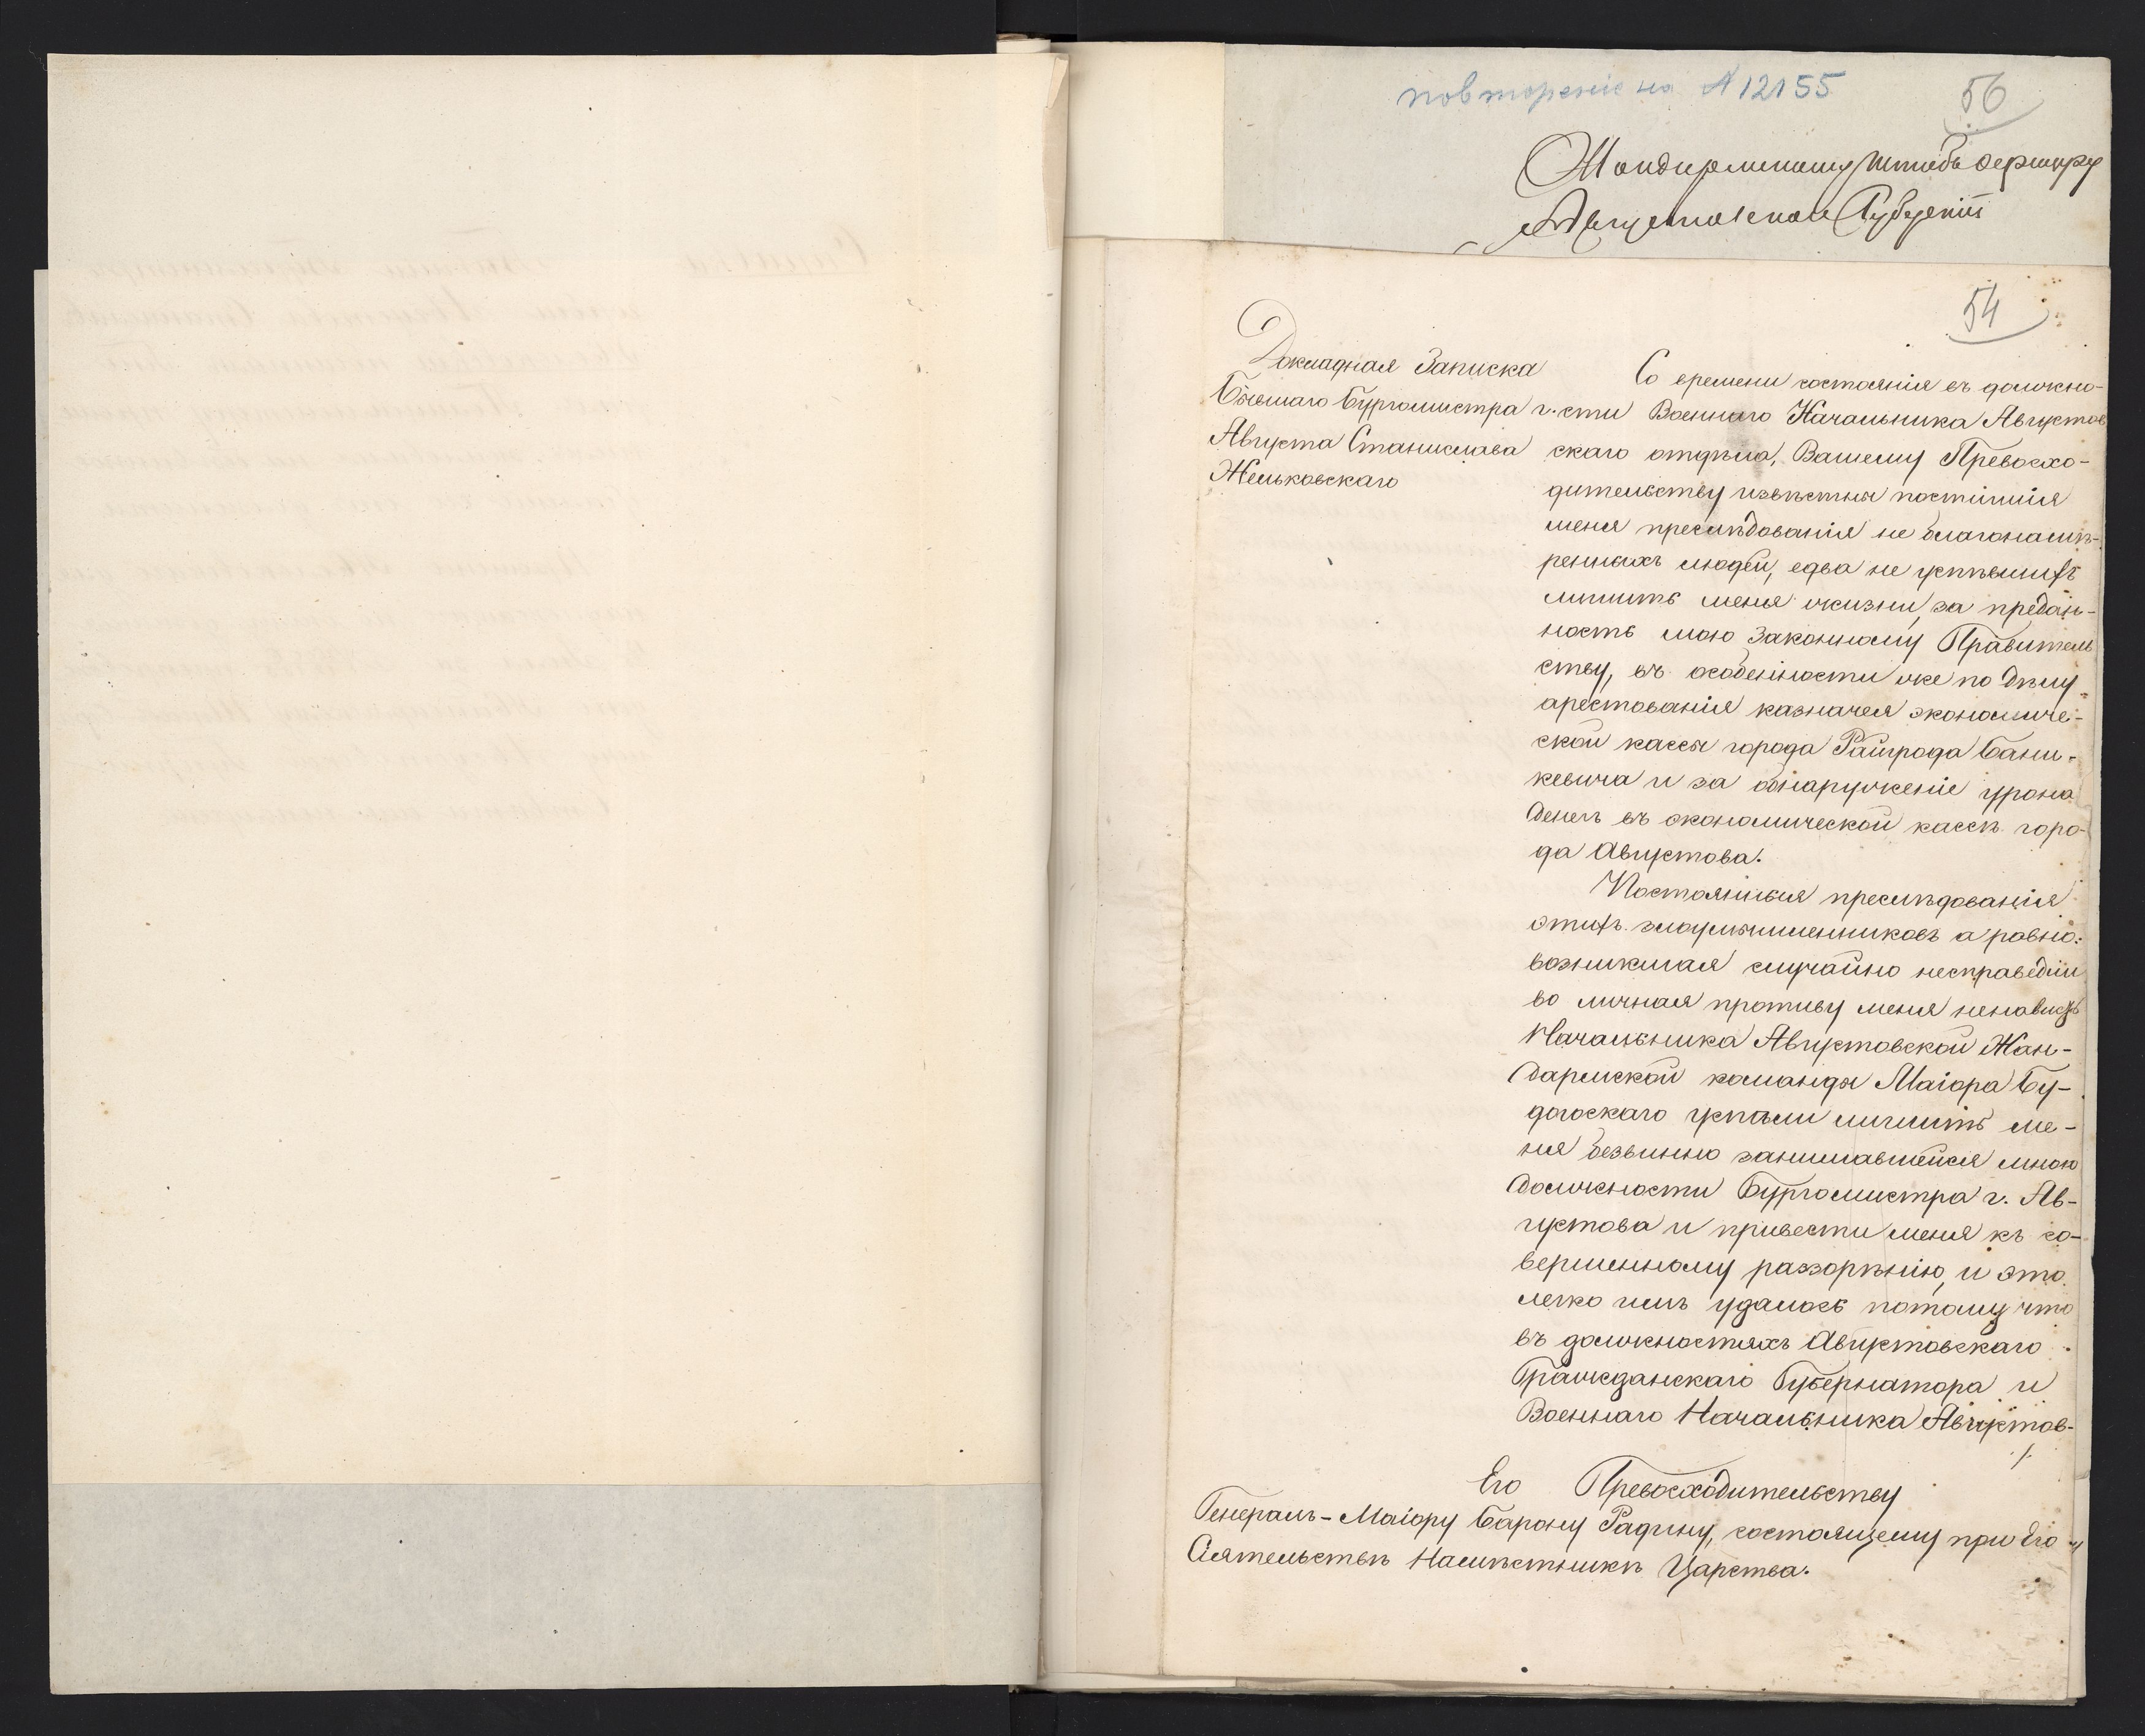 повтореніе на № 12155
56
Жандармскому Штабъ Офицеру
Августовской Губерніи
54
Докладная Записка
Бывшаго Бургомистра г.
Августа Станислава
Жельковскаго
Со времени состоянія въ должно-
сти Военнаго Начальника Августов
скаго отдѣла, Вашему Превосхо-
дительству извѣстны постигшія
меня преслѣдованія не благонамѣ-
ренныхъ людей, едва не успѣвшихъ
лишить меня жизни, за предан-
ность мою Законному Правитель
ству, въ особенности же по дѣлу
арестованія казначея экономиче-
ской кассы города Райгрода Бани-
кевича и за обнаруженіе урона
денегъ въ экономической кассѣ горо-
да Августова.
Постоянныя преслѣдованія
этихъ злоумышленниковъ а равно
возникшая случайно несправедли
во личная противу меня ненависть
Начальника Августовской Жан-
дармской команды Маіора Бу-
догоскаго успѣли лишить ме-
ня безвинно занимавшейся мною
должности Бургомистра г. Ав-
густова и привести меня къ со-
вершенному раззорѣнію, и это
легко имъ удалось потому что
въ должностяхъ Августовскаго
Гражданскаго Губернатора и
Военнаго Начальника Августов-
./.
Его Превосходительству
Генералъ-Маіору Барону Радину, состоящему при Его
Сіятельствѣ Намѣстникѣ Царства.